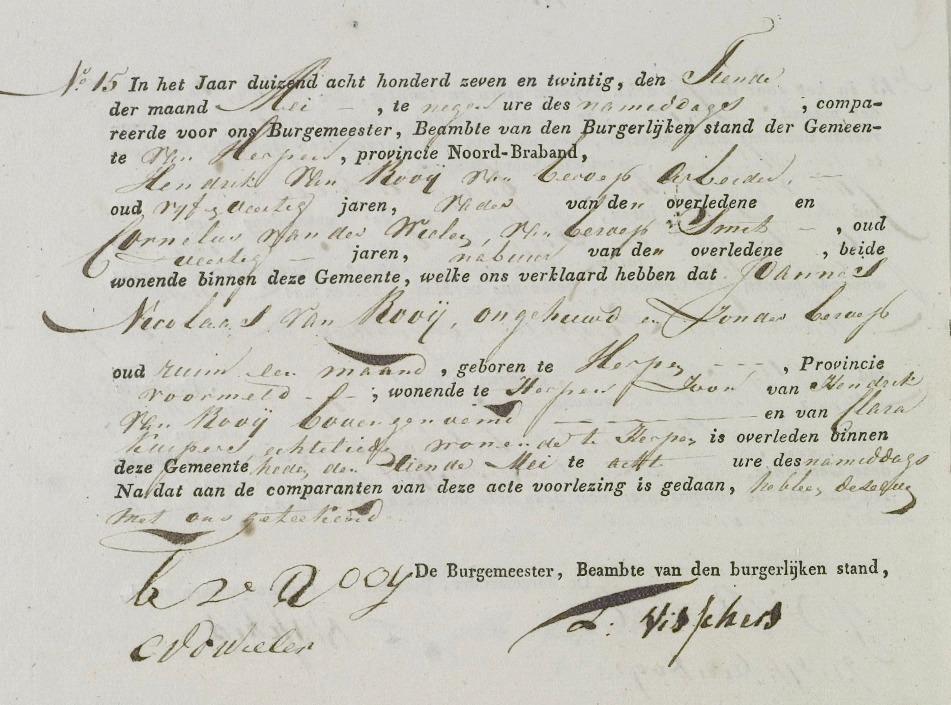 No. 15 In het Jaar duizend acht honderd zeven en twintig, den Tiende
der maand Mei - , te negen ure des nameddags ; compa-
reerde voor ons Burgemeester, Beambte van den Burgerlijken stand der Gemeen-
te van Herpen , provincie Noord-Braband,
Hendrik van Rooij van beroep arbeider, -
oud vyf & veertig jaren, vader van den overledene en
Cornelus van der Wielen, van beroep Smit - , oud
veertig - jaren, nabuur van den overledene , beide
wonende binnen deze Gemeente, welke ons verklaard hebben dat Joannes
Nicolaas van Rooij, ongehuwd en Zonder beroep
oud ruim een maand , geboren te Herpen - - - , Provincie
voormeld - - ; wonende te Herpen Zoon van Hendrik
van Rooij bovengenoemd en van Clara
Kuipers echtelieden wonende te Herpen is overleden binnen
deze Gemeente heden den tiende Mei te acht ure des nameddags
Na dat aan de comparanten van deze acte voorlezing is gedaan, hebben dezelve
met ons geteekend.
De Burgemeester, Beambte van den burgerlijken stand,
h v Rooy
C V D Wielen
L: Visschers